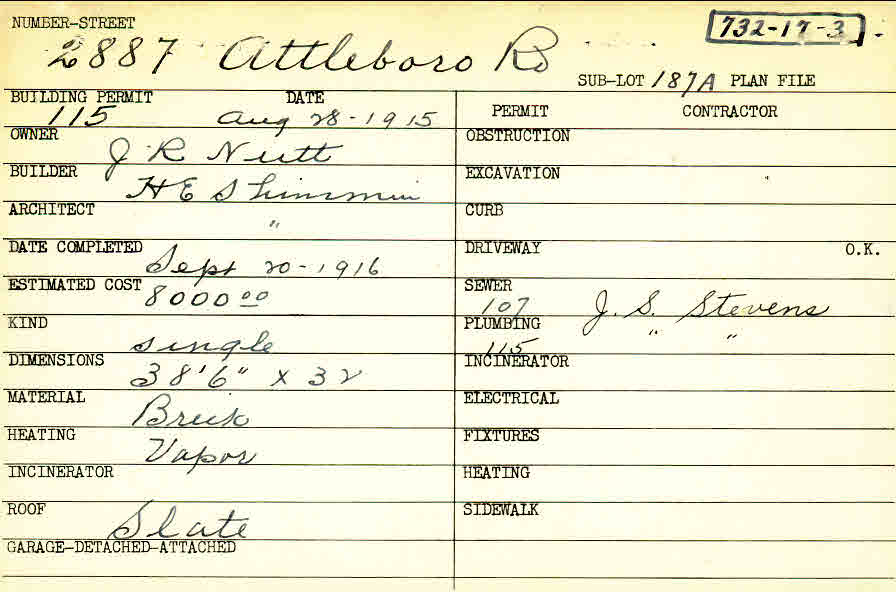 NUMBER-STREET
732-17-3
2887 Attleboro Rd
SUB-LOT 187A PLAN FILE
BUILDING PERMIT DATE
115 Aug 28-1915
OWNER
J R Nutt
BUILDER
H E Shimmin
ARCHITECT
"
DATE COMPLETED
Sept 20-1916
ESTIMATED COST
8000 00
KIND
single
DIMENSIONS
38'6" x 32
MATERIAL
Brick
HEATING
Vapor
INCINERATOR
ROOF
Slate
GARAGE-DETACHED-ATTACHED
PERMIT CONTRACTOR
OBSTRUCTION
EXCAVATION
CURB
DRIVEWAY O.K.
SEWER
107 J. S. Stevens
PLUMBING " "
115
INCINERATOR
ELECTRICAL
FIXTURES
HEATING
SIDEWALK